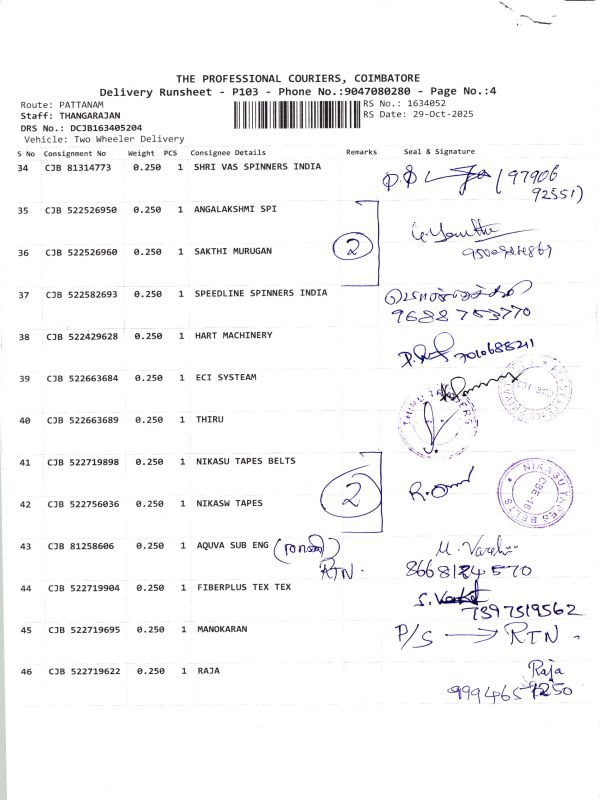 THE PROFESSIONAL COURIERS, COIMBATORE
Delivery Runsheet - P103 - Phone No.:9047080280 - Page No.:4
Route: PATTANAM RS No.: 1634052
Staff: THANGARAJAN RS Date: 29-Oct-2025
DRS No.: DCJB163405204
Vehicle: Two Wheeler Delivery
S No Consignment No Weight PCS Consignee Details Remarks Seal & Signature
34 CJB 81314773 0.250 1 SHRI VAS SPINNERS INDIA (97906
92551)
35 CJB 522526950 0.250 1 ANGALAKSHMI SPI
2
36 CJB 522526960 0.250 1 SAKTHI MURUGAN
37 CJB 522582693 0.250 1 SPEEDLINE SPINNERS INDIA
9688753770
38 CJB 522429628 0.250 1 HART MACHINERY 7010688211
39 CJB 522663684 0.250 1 ECI SYSTEAM
40 CJB 522663689 0.250 1 THIRU
THIRU
41 CJB 522719898 0.250 1 NIKASU TAPES BELTS
2
NIKASU TAPES BELTS
CBE-16
42 CJB 522756036 0.250 1 NIKASW TAPES
43 CJB 81258606 0.250 1 AQUVA SUB ENG
RTN. 8668184570
44 CJB 522719904 0.250 1 FIBERPLUS TEX TEX
7397519562
45 CJB 522719695 0.250 1 MANOKARAN P/S → RTN.
46 CJB 522719622 0.250 1 RAJA Raja